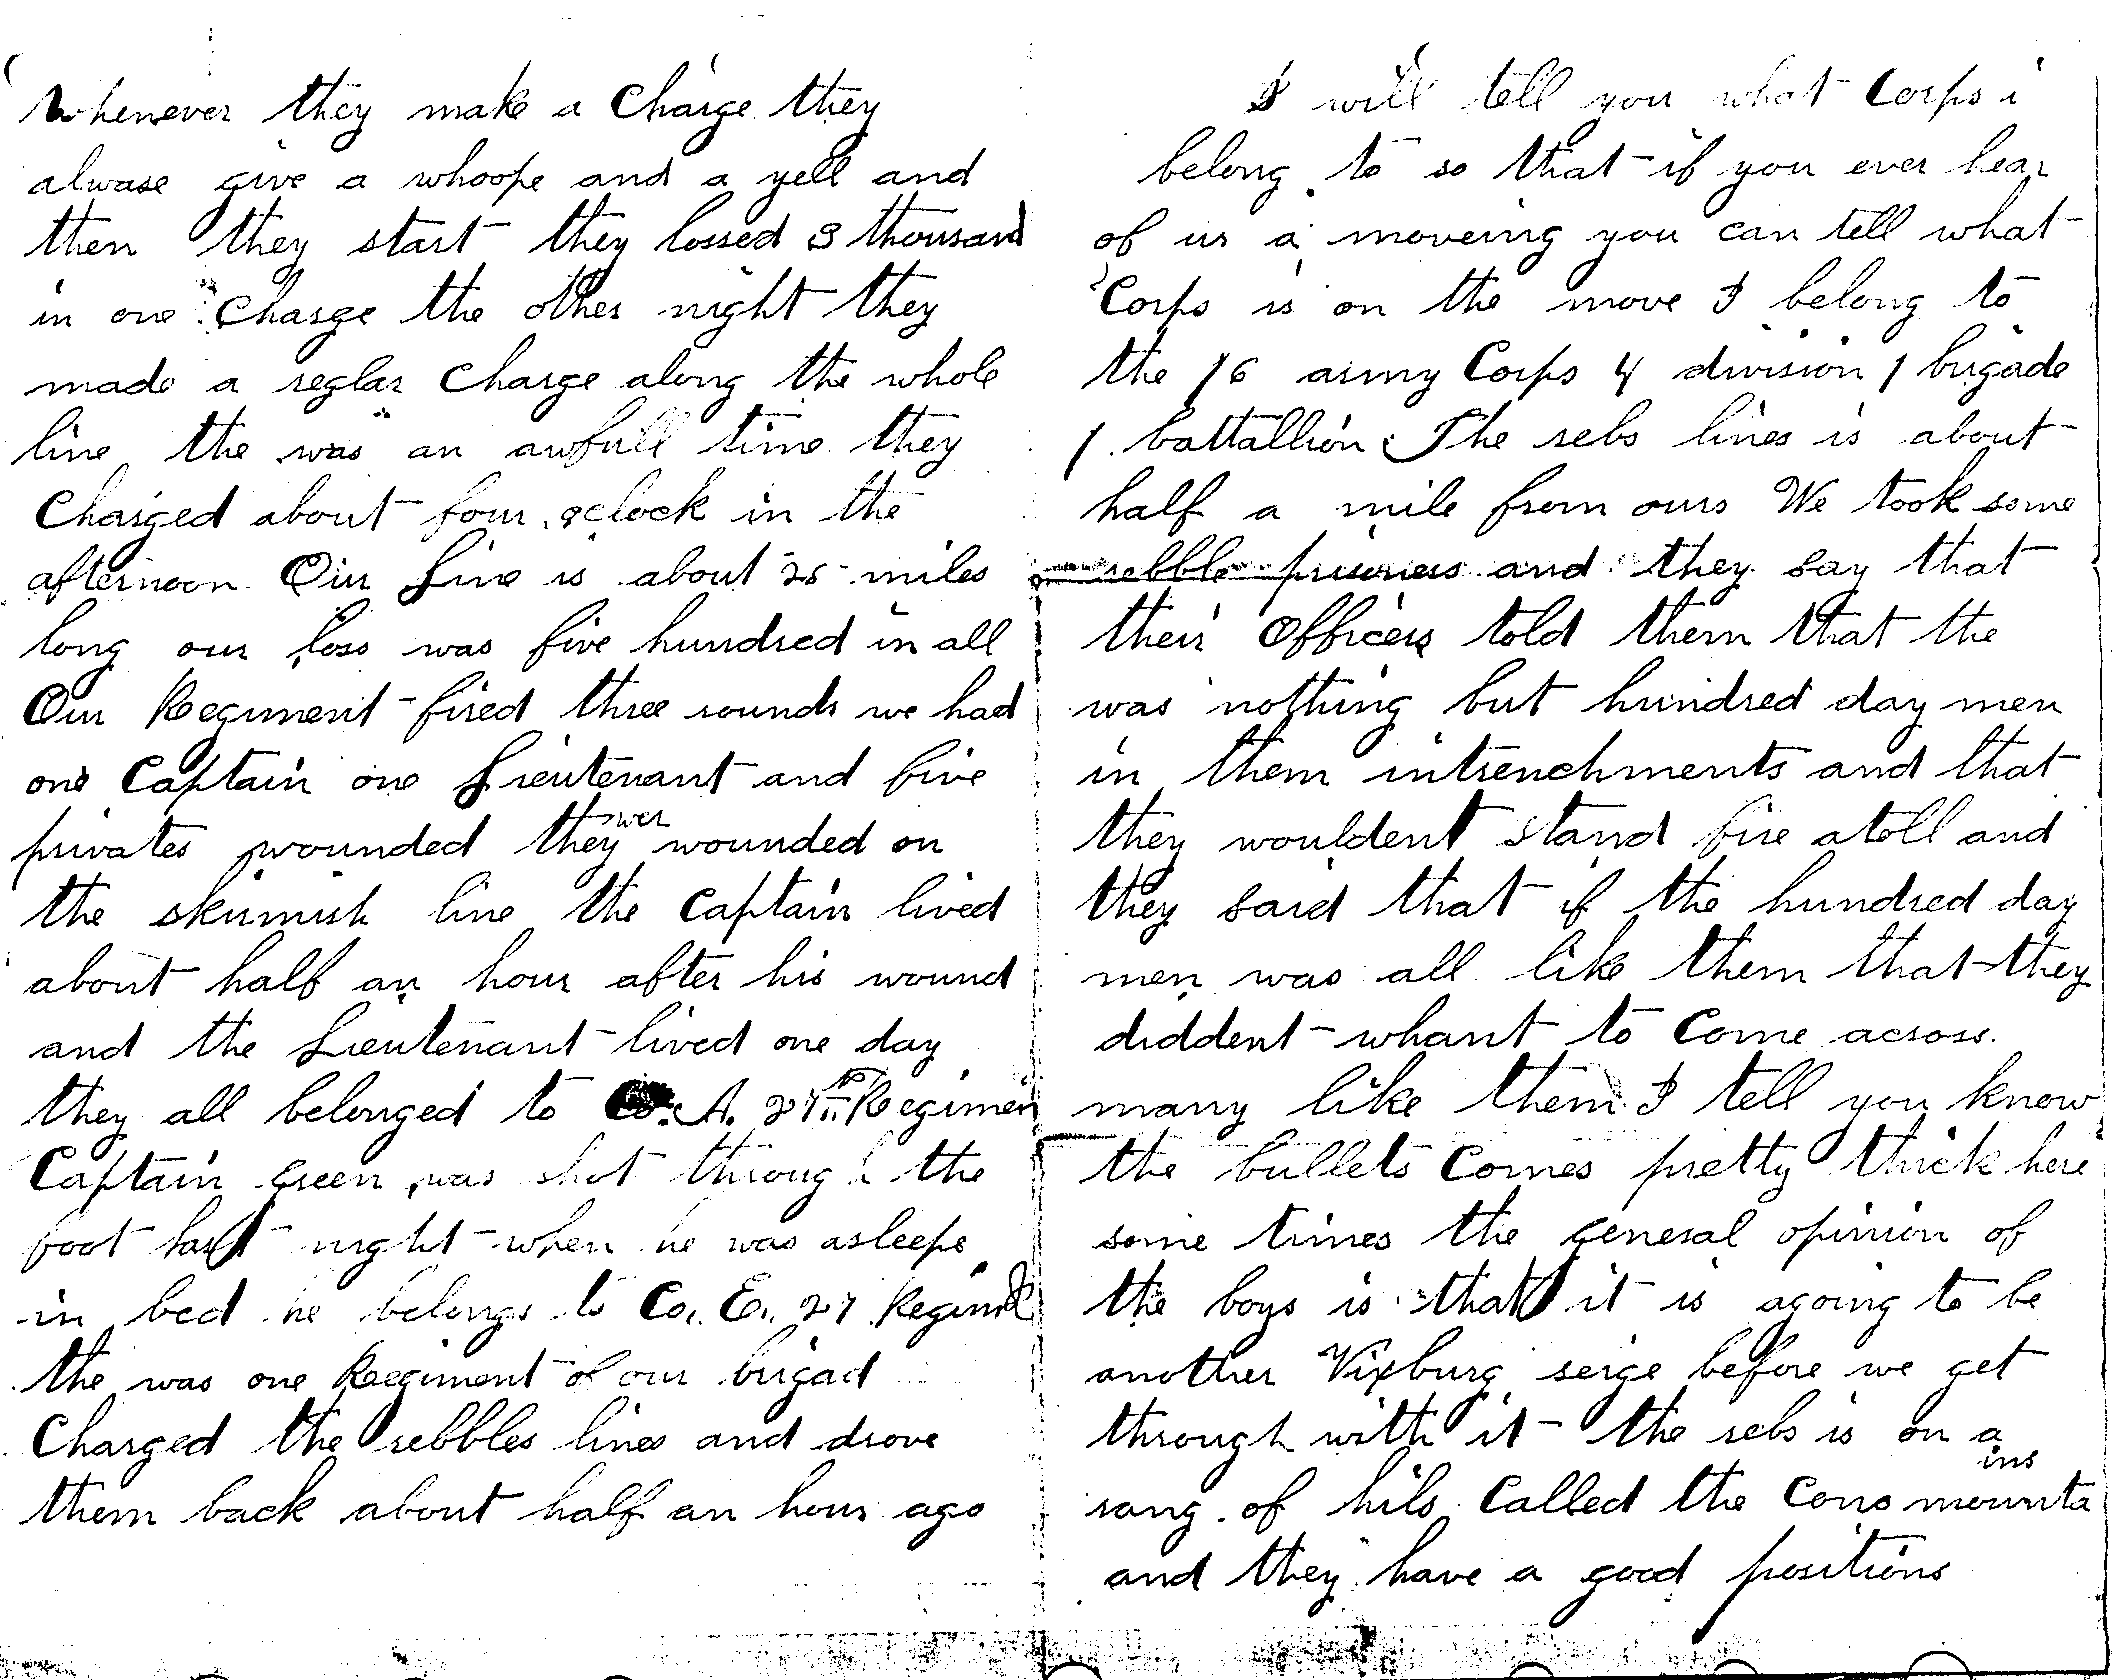 Whenever they make a Charge they
alwase give a whoope and a yell and
then they start they lossed 3 thousand
in one Charge the other night they
made a reglar Charge along the whole
line the was an awfull time they
Charged about four oclock in the
afternoon Our Line is about 25 miles
long our loss was five hundred in all
Our Regiment fired three rounds we had
one Captain one Lieutenant and five
privates wounded they wer wounded on
the skirmish line the Captain lived
about half an hour after his wound
and the Lieutenant lived one day
they all belonged to Co. A. 27th Regimen
Captain Green was shot through the
foot last night when he was asleepe
in bed he belongs to Co. E. 27 Regimt
the was one Regiment of our brigad
Charged the rebbles lines and drove
them back about half an hour ago
I will tell you what Corps i
belong to so that if you ever hear
of us a moveing you can tell what
Corps is on the move I belong to
the 16 army Corps 4 division 1 brigade
1 battallion The rebs lines is about
half a mile from ours We took some
rebble prisners and they say that
their Officers told them that the
was nothing but hundred day men
in them intrenchments and that
they wouldent stand fire atoll and
they said that if the hundred day
men was all like them that they
diddent whant to Come across
many like them I tell you know
the bullets Comes pretty thick here
some times the general opinion of
the boys is that it is agoing to be
another Vixburg seige before we get
through with it the rebs is on a
rang of hils Called the Cono mountains
and they have a good positions